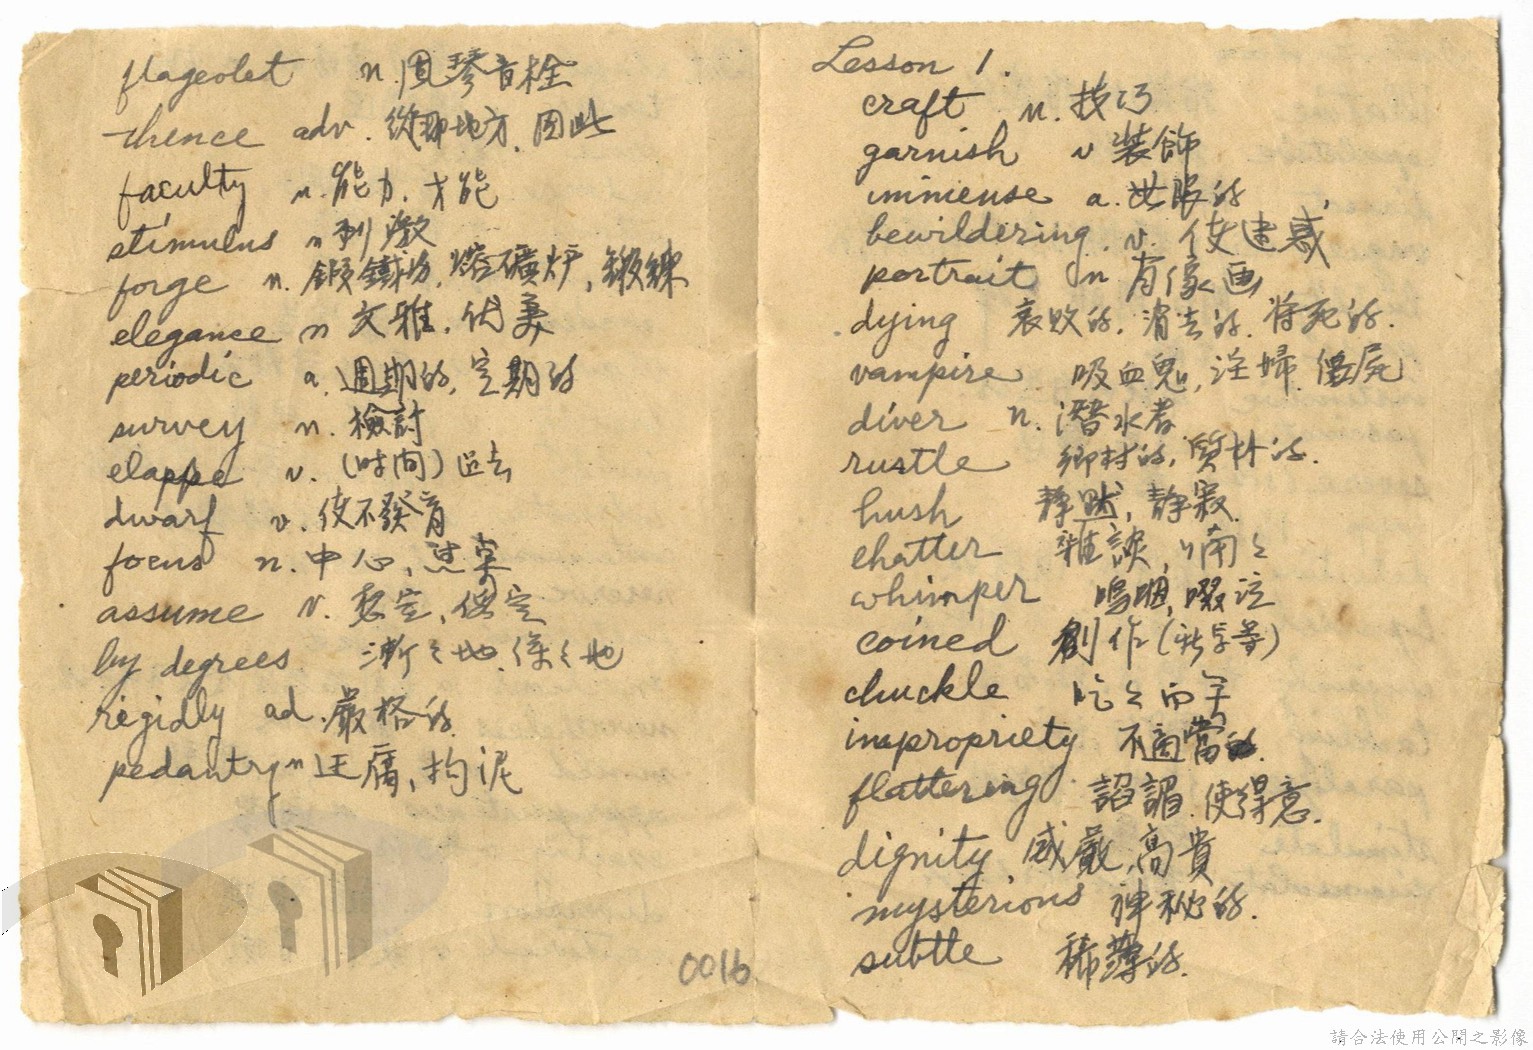 flageolet n. 風琴音栓
thence adv. 從那地方、因此
faculty n. 能力、才能
stimulus n 刺激
forge n. 鍛鐵場,熔礦炉,鍛鍊
elegance n 文雅,优美
periodic a. 週期的,定期的
survey n. 檢討
elappe v. (时间)过去
dwarf v. 使不發育
focus n. 中心,焦点
assume v. 假定
by degrees 漸々地、徐々地
rigidly ad. 嚴格的
pedantry n 迂腐,拘泥
0016
Lesson 1.
craft n. 技巧
garnish v 裝飾
immense a. 无限的
bewildering. v. 使迷惑
portrait n 肖像画
dying 衰败的,消去的,将死的.
vampire 吸血鬼,淫婦,僵屍
diver n. 潛水者
rustle 鄉村的,質朴的.
hush 静默,静寂
chatter 雜談,喃々
whimper 嗚咽,啜泣
coined 創作(新字等)
chuckle 吃々而笑
impropriety 不適當的.
flattering 諂媚,使得意.
dignity 威嚴,高貴
mysterious 神秘的.
subtle 稀薄的.
請合法使用公開之影像